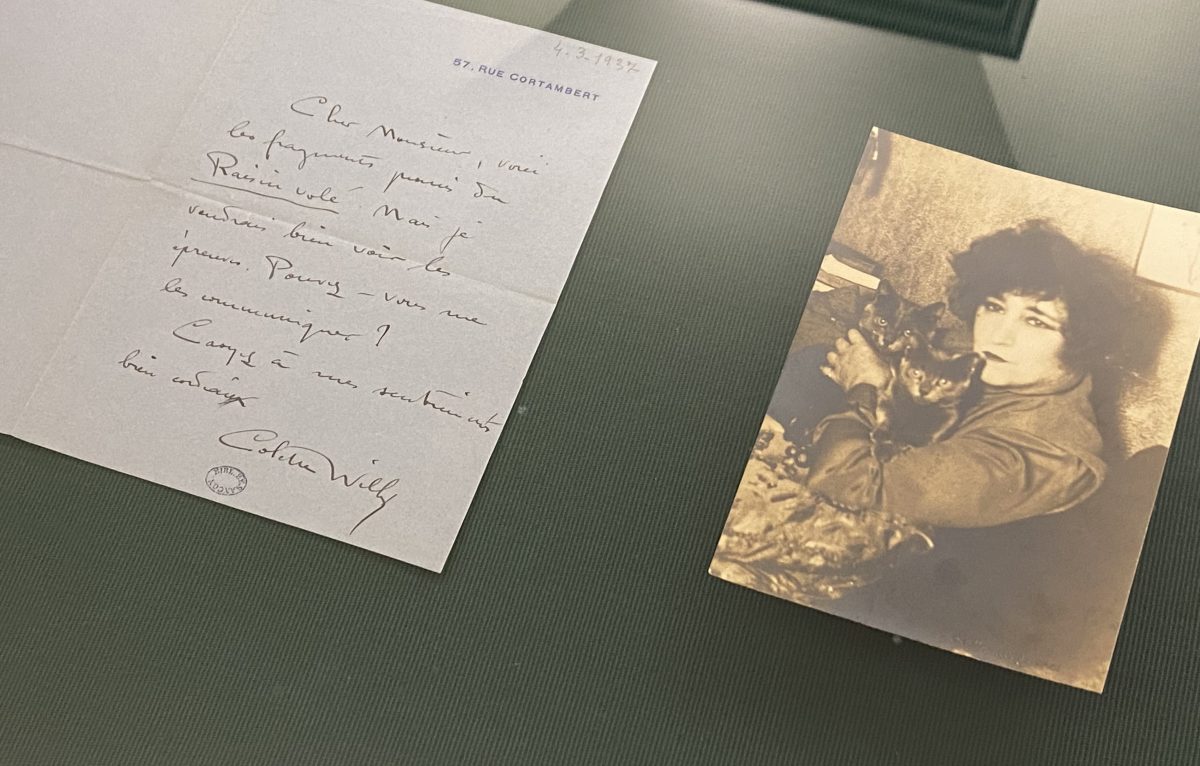 4.3.1937
57, RUE CORTAMBERT
Cher Monsieur, voici
les fragments promis du
Raisin volé. Mais je
voudrais bien voir les
épreuves. Pouvez-vous me
les communiquer ?
Croyez à mes sentiments
bien cordiaux
Colette Willy